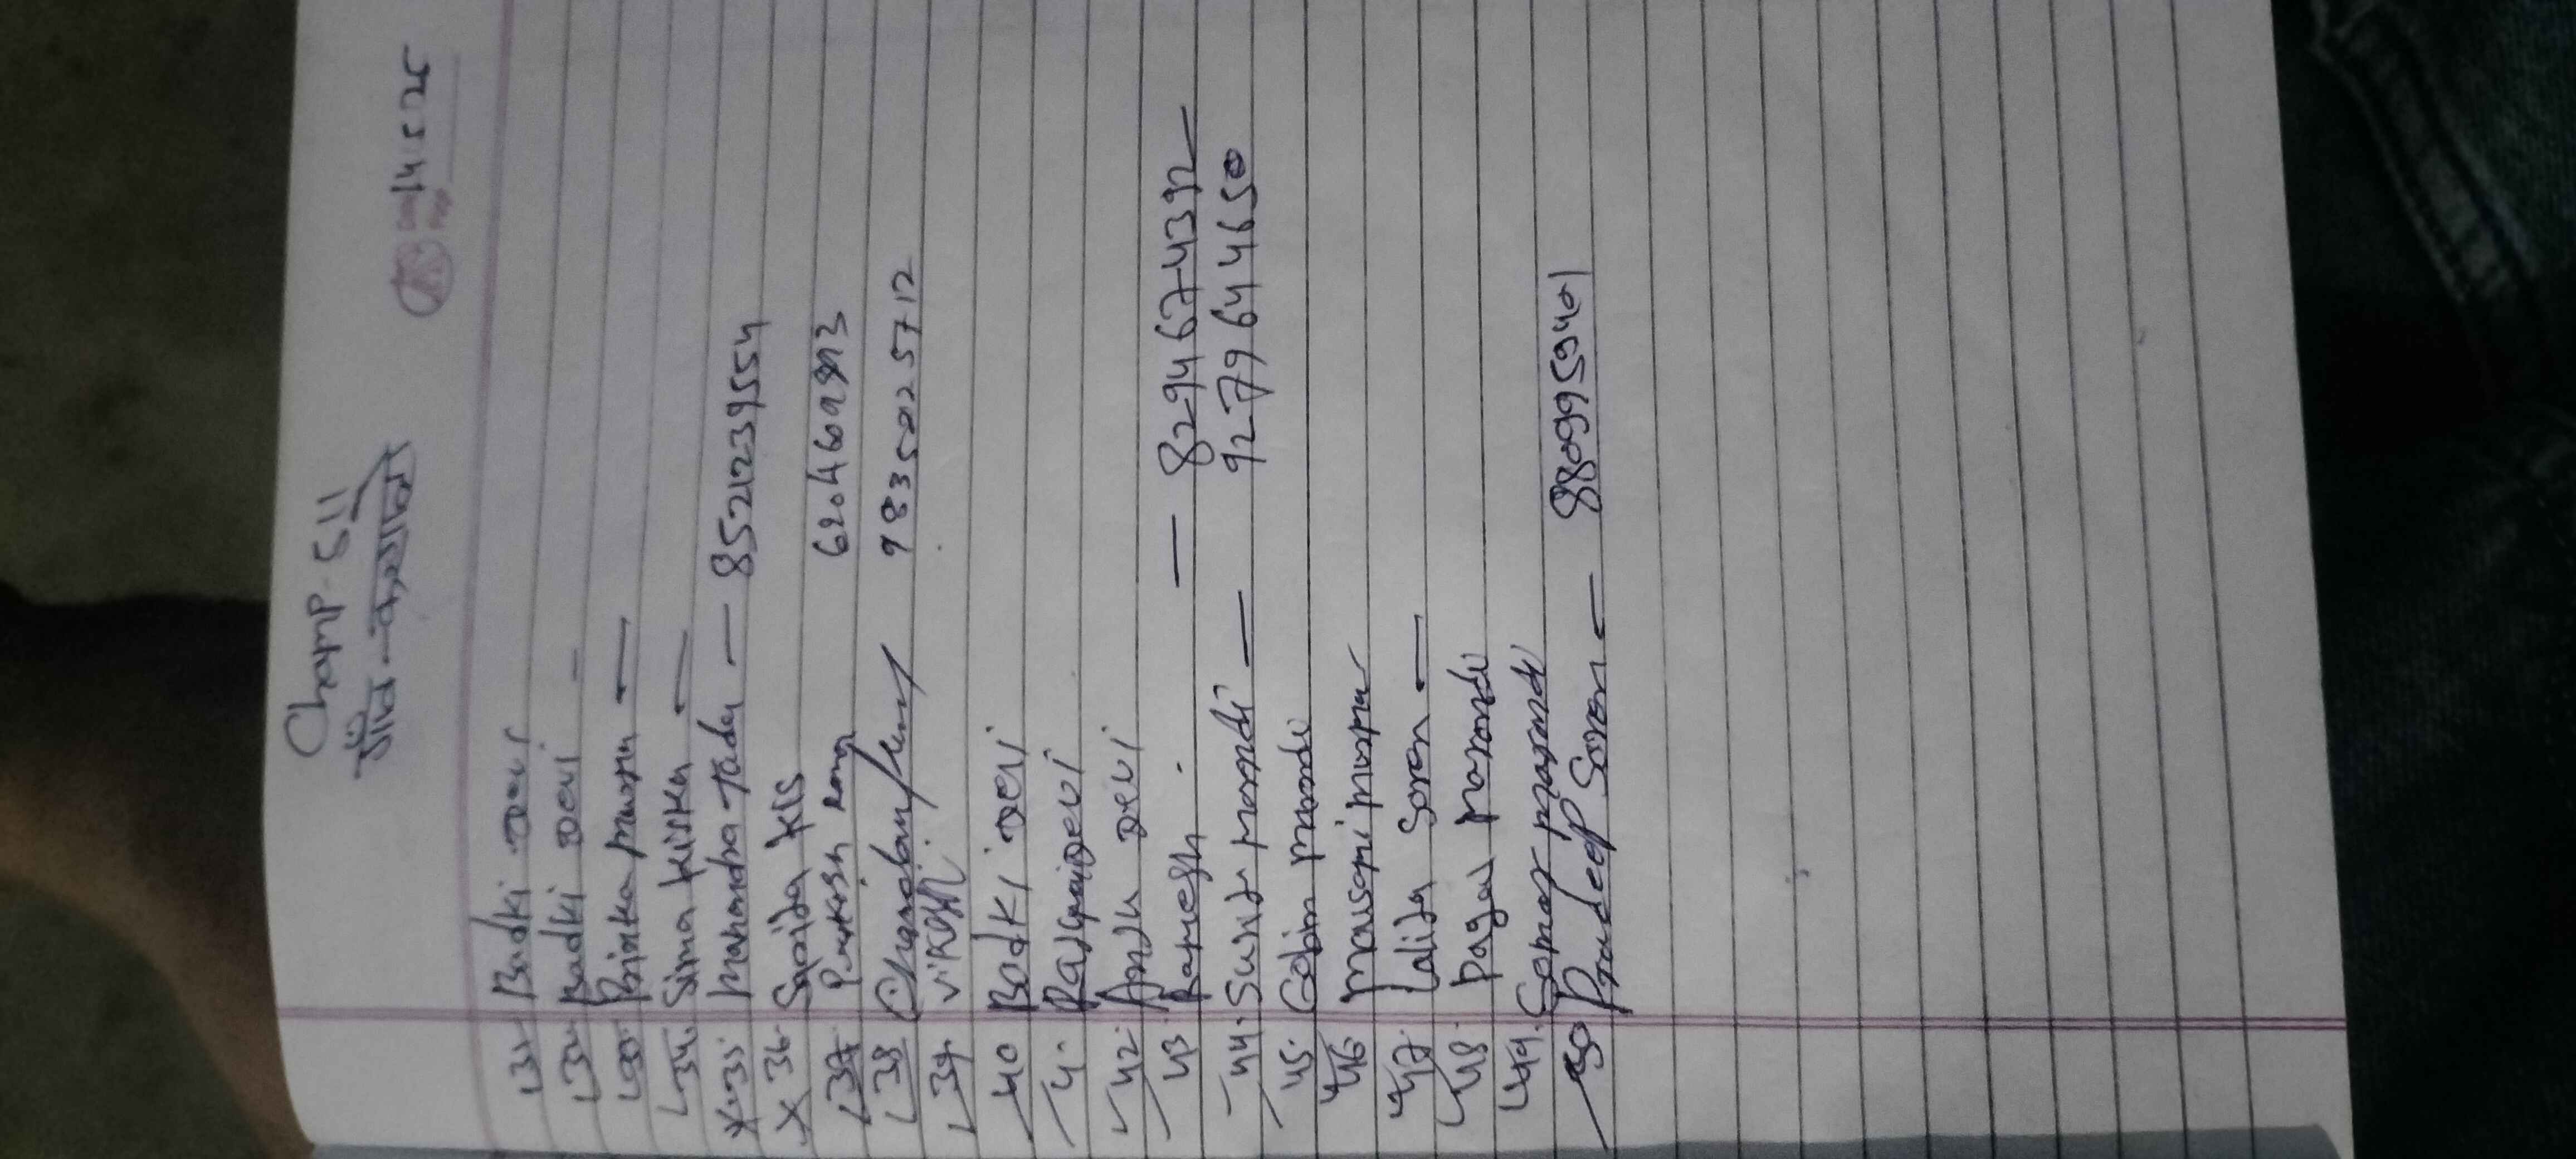 Champ-511
गाँव -
14.5.25
31. Badki Devi
32. Badki Devi -
33. Prinka murmu —
34. Sima kisku —
x 35. Mahandra Yadav — 8521239554
x 36. Sajida Kis
37. Prakash Rang 620
38 98350225712
39. Vikash
40 Badki Devi
41. Devi
42. Anju Devi
43. Ramesh — 8294674392
44. Sunita marandi — 9279644650
45. Gobin marandi
46 mausomi murmu
47. Lalita Soren —
48. Pagan marandi
49. Somay marandi
50 Pradeep Soren — 8809959401